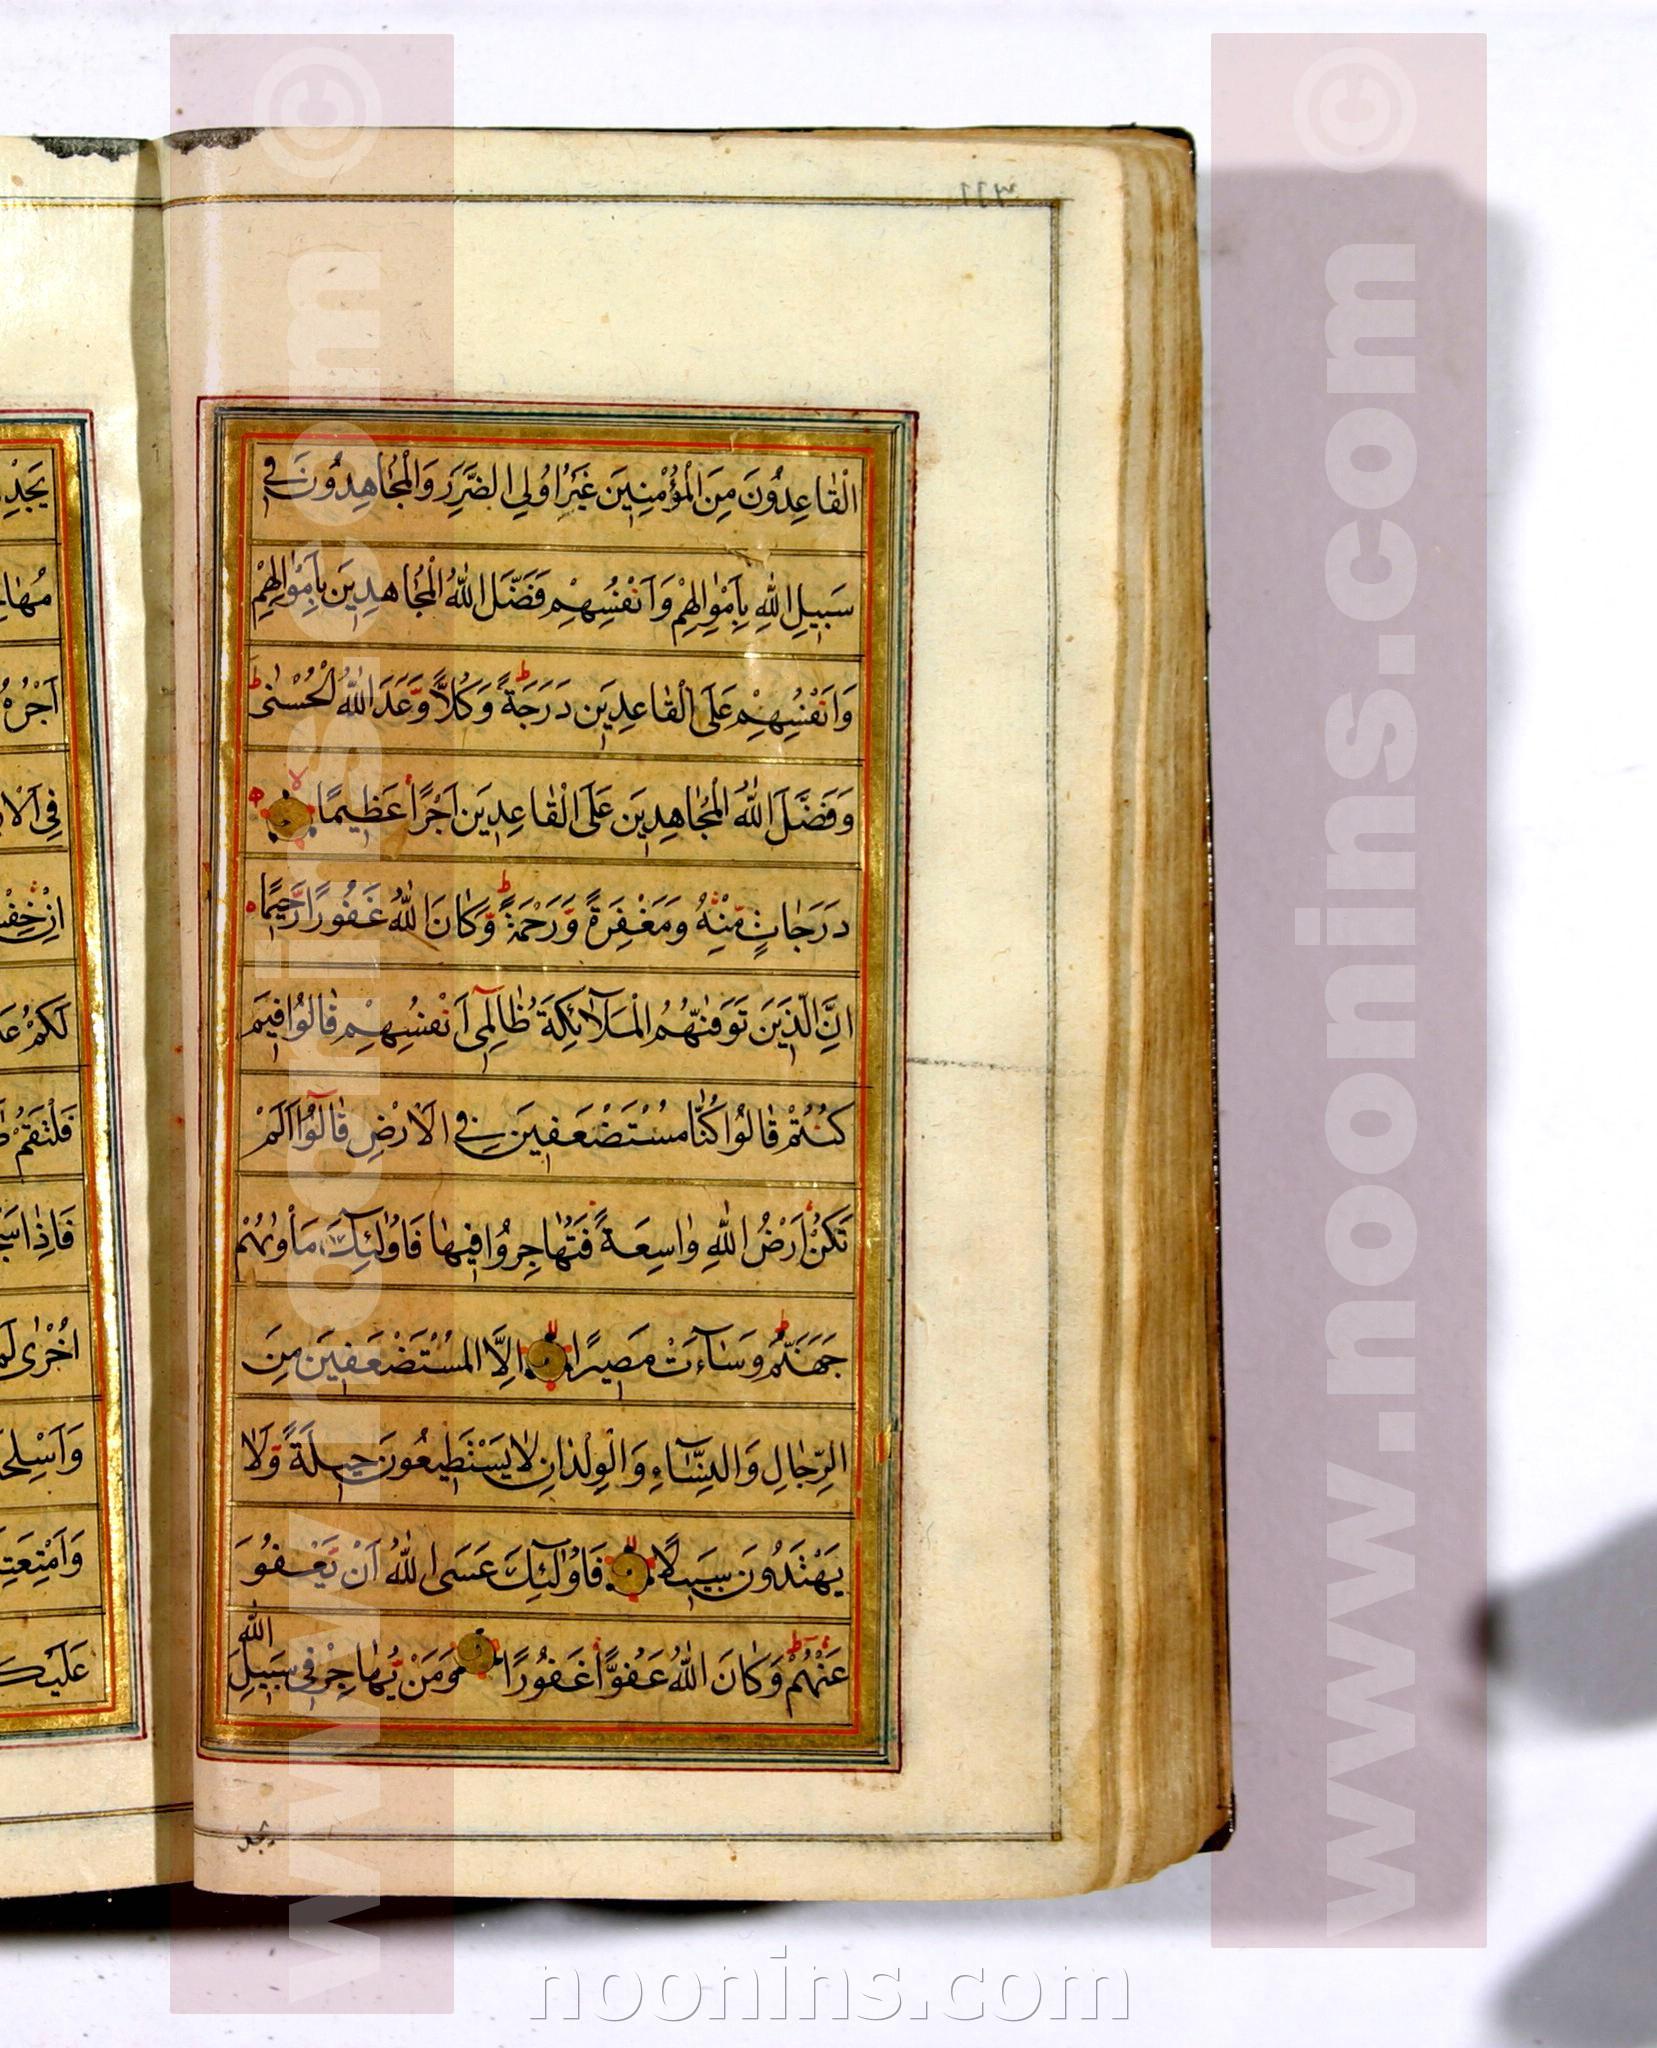 الْقٰاعِدُونَ مِنَ الْمُؤْمِنِينَ غَيْرُ اُولِي الضَّرَرِ وَالْمُجٰاهِدُونَ فِي
سَبِيلِ اللّٰهِ بِاَمْوٰالِهِمْ وَاَنْفُسِهِمْ فَضَّلَ اللّٰهُ الْمُجٰاهِدِينَ بِاَمْوٰالِهِمْ
وَاَنْفُسِهِمْ عَلَى الْقٰاعِدِينَ دَرَجَةً وَكُلاًّ وَّعَدَ اللّٰهُ الْحُسْنٰى
وَفَضَّلَ اللّٰهُ الْمُجٰاهِدِينَ عَلَى الْقٰاعِدِينَ اَجْرًا عَظِيمًا
دَرَجٰاتٍ مِّنْهُ وَمَغْفِرَةً وَّرَحْمَةً وَّكٰانَ اللّٰهُ غَفُورًا رَّحِيمًا
اِنَّ الَّذِينَ تَوَفّٰىهُمُ الْمَلٰٓائِكَةُ ظٰالِمِٓي اَنْفُسِهِمْ قٰالُوا فِيمَ
كُنْتُمْ قٰالُوا كُنّٰا مُسْتَضْعَفِينَ فِي الْاَرْضِ قٰالُوٓا اَلَمْ
تَكُنْ اَرْضُ اللّٰهِ وٰاسِعَةً فَتُهٰاجِرُوا فِيهٰا فَاُولٰٓئِكَ مَأْوٰىهُمْ
جَهَنَّمُ وَسٰٓاءَتْ مَصِيرًا اِلَّا الْمُسْتَضْعَفِينَ مِنَ
الرِّجٰالِ وَالنِّسٰٓاءِ وَالْوِلْدٰانِ لٰا يَسْتَطِيعُونَ حِيلَةً وَّلٰا
يَهْتَدُونَ سَبِيلًا فَاُولٰٓئِكَ عَسَى اللّٰهُ اَنْ يَّعْفُوَ
عَنْهُمْ وَكٰانَ اللّٰهُ عَفُوًّا غَفُورًا وَمَنْ يُّهٰاجِرْ فِي سَبِيلِ اللّٰهِ
يجد
يَجِدْ
اَجْرُهُ
لَكُمْ
فَلْتَقُمْ
فَاِذٰا
اُخْرٰى
عَلَيْكُ
www.noonins.com ©
www.noonins.com ©
noonins.com